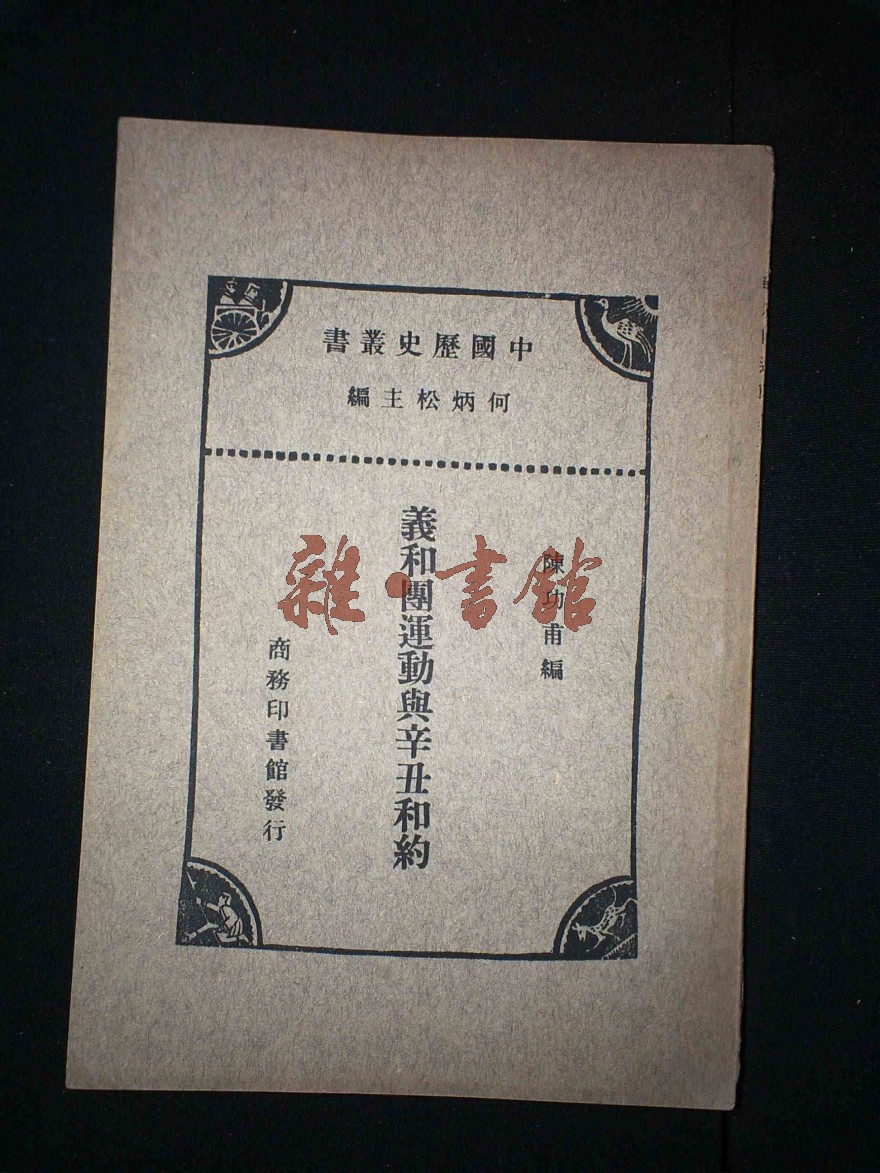 中國歷史叢書
何炳松主編
陳功甫編
義和團運動與辛丑和約
商務印書館發行
雜·書館